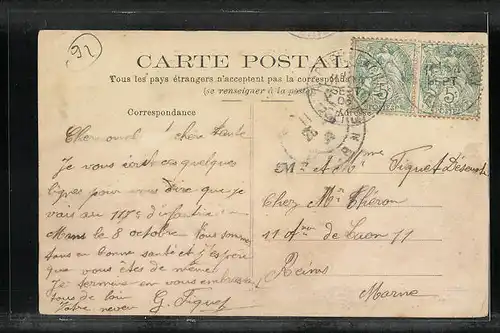 92
CARTE POSTALE
Tous les pays étrangers n'acceptent pas la correspondance
(se renseigner à la poste)
Correspondance
Adresse
chère tante
Je vous écris ces quelques
lignes pour vous dire que je
vais au 117e d'infanterie
Mans le 8 octobre. Nous sommes
tous en bonne santé et j'espère
que vous êtes de même
Je termine en vous embrassant
tous de loin
Votre neveu G. Fiquet
Mr & Mme Fiquet
Chez Mr Théron
11 de Laon 11
Reims
Marne